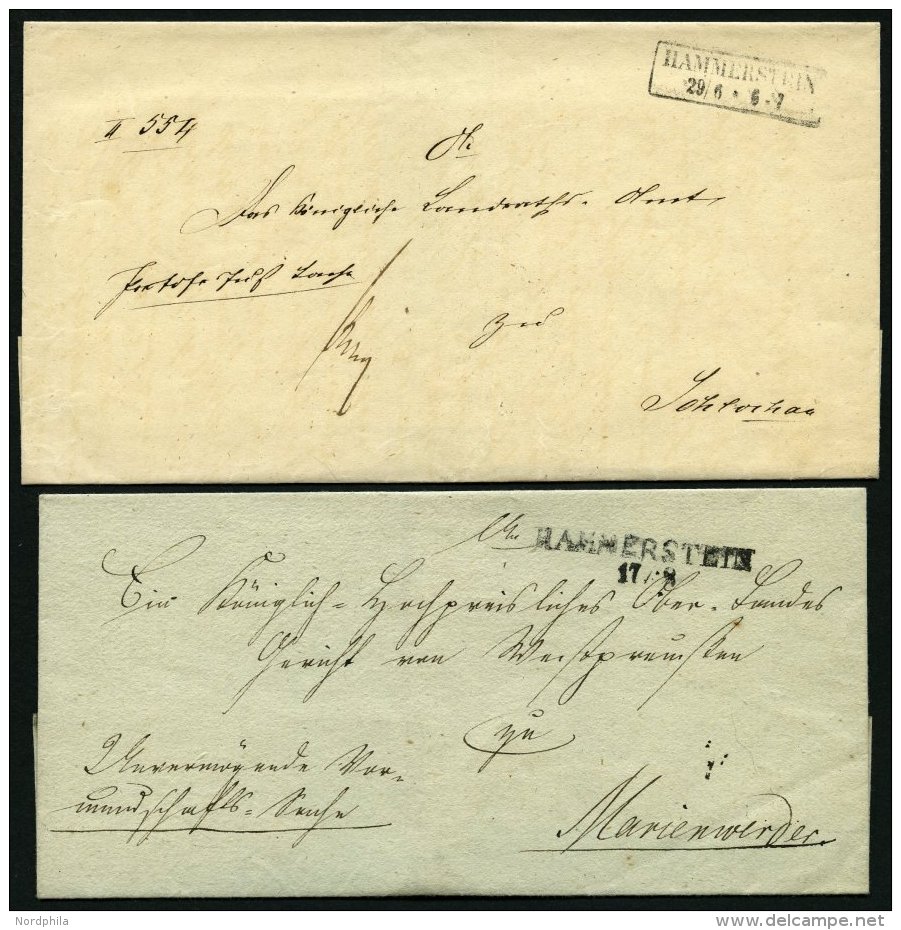 HAMMERSTEIN
29/6 * 6-7
II 554
An
Das Königliche Landraths-Amt
zu
Schlochau
An
HAMMERSTEIN
17/8
Ein Königlich-Hochpreisliches Ober-Landes
Gericht von Westpreussen
zu
Unvermögende Vor-
mundschafts-Sache
Marienwerder.
Nordphila
delcampe.net